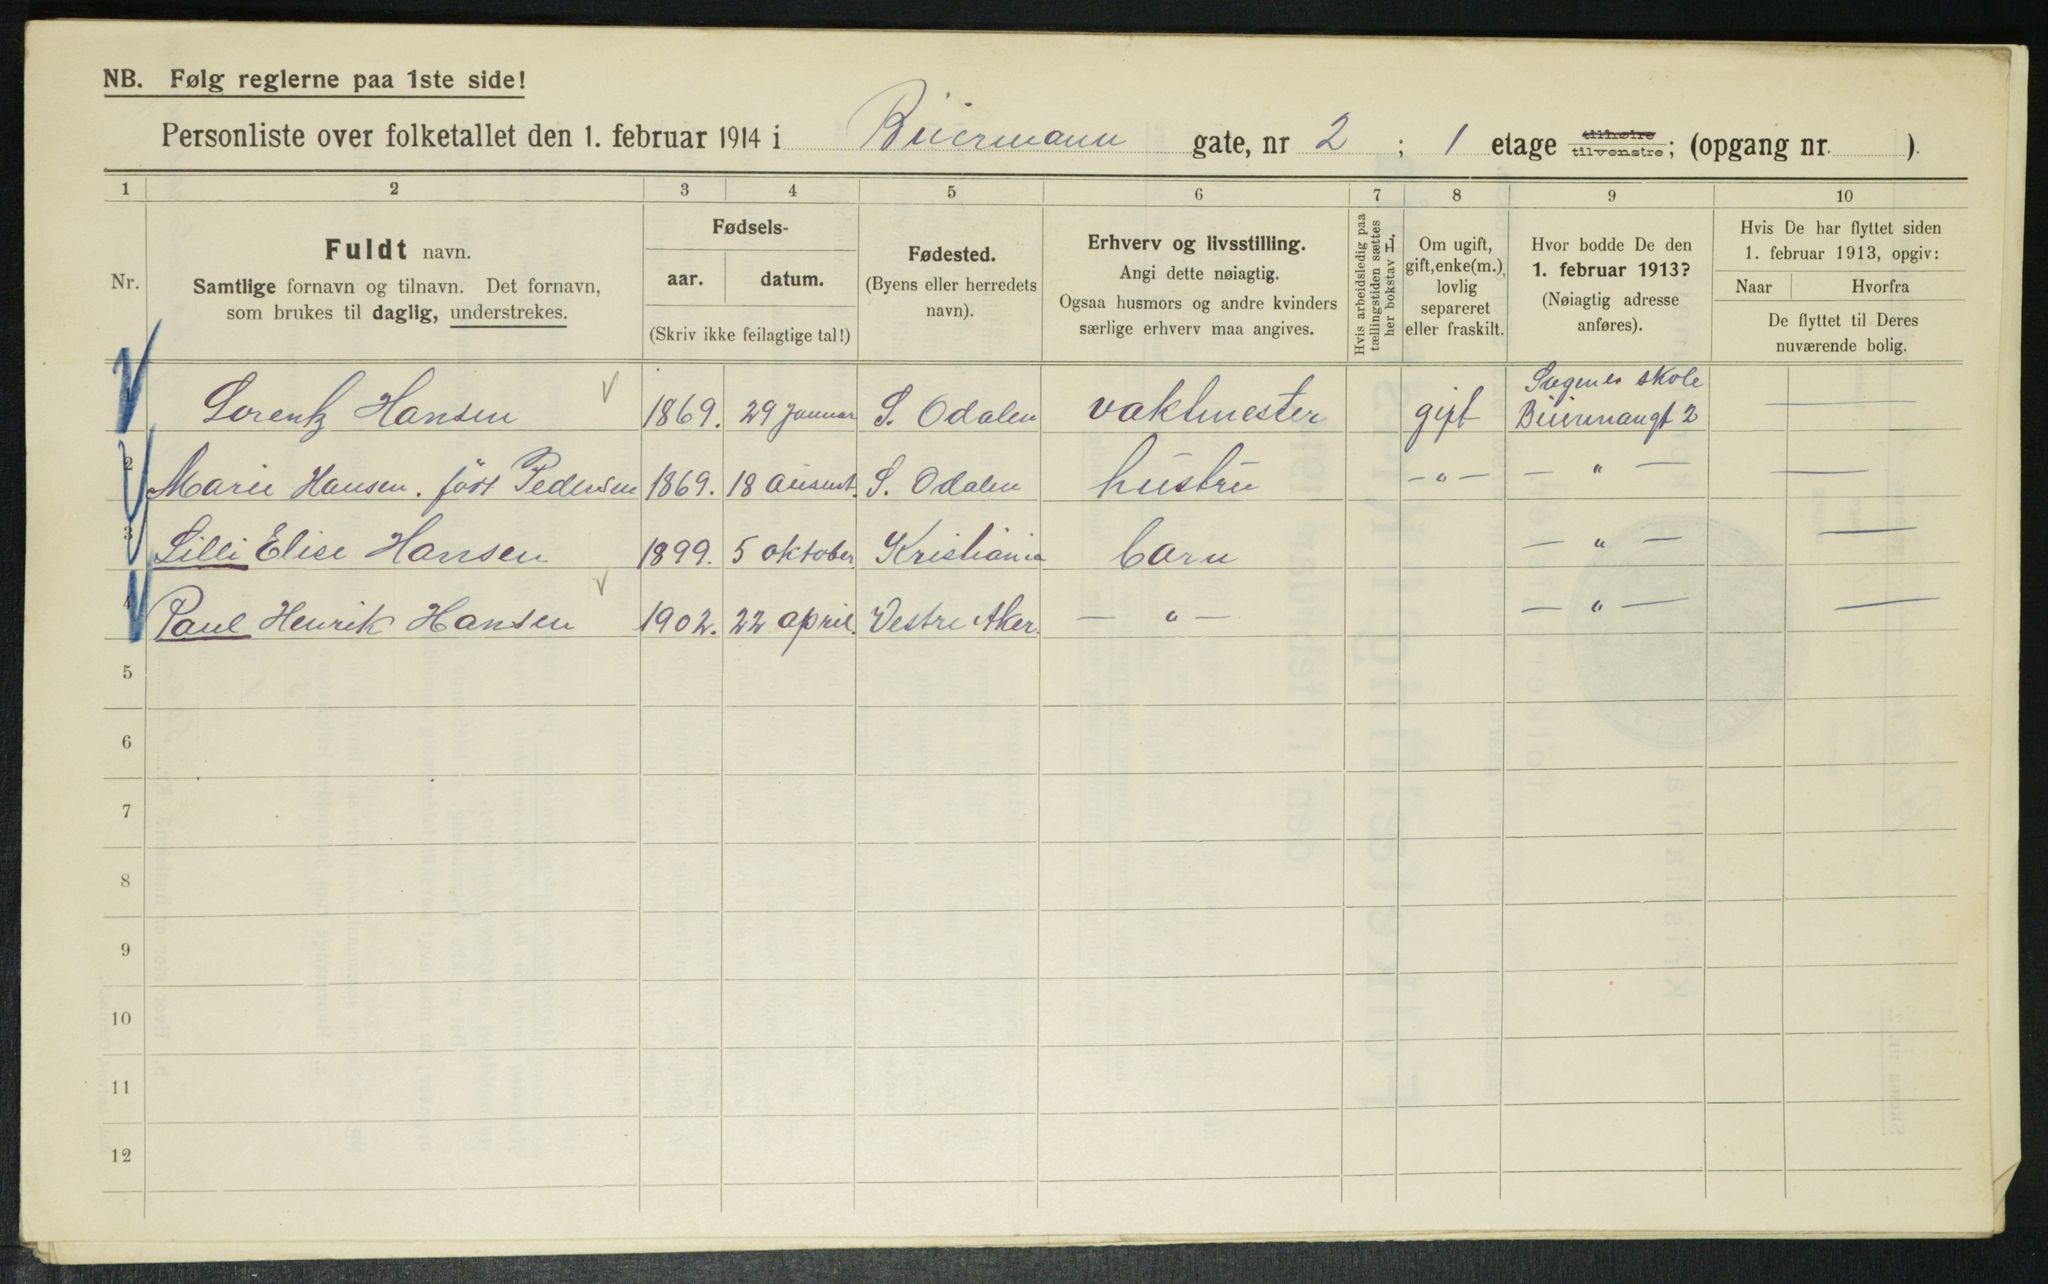 NB. Følg reglerne paa 1ste side!
Personliste over folketallet den 1. februar 1914 i Biermann gate, nr 2 ; 1 etage tilhøire tilvenstre; (opgang nr. ).
1 2 3 4 5 6 7 8 9 10
Nr.
Fuldt navn.
Samtlige fornavn og tilnavn. Det fornavn,
som brukes til daglig, understrekes.
Fødsels-
aar. datum.
(Skriv ikke feilagtige tal!)
Fødested.
(Byens eller herredets
navn).
Erhverv og livsstilling.
Angi dette nøiagtig.
Ogsaa husmors og andre kvinders
særlige erhverv maa angives.
Hvis arbeidsledig paa
tællingstiden sættes
her bokstav L.
Om ugift,
gift, enke(m.),
lovlig
separeret
eller fraskilt.
Hvor bodde De den
1. februar 1913?
(Nøiagtig adresse
anføres).
Hvis De har flyttet siden
1. februar 1913, opgiv:
Naar Hvorfra
De flyttet til Deres
nuværende bolig.
Sagenes skole
1 Lorentz Hansen 1869. 29 januar S. Odalen vaktmester gift Biermansgt 2 —
2 Marie Hansen. født Pedersen 1869. 18 august. S. Odalen hustru — " — — " — —
3 Lilli Elise Hansen 1899. 5 oktober Kristiania barn — " — —
4 Paul Henrik Hansen 1902. 22 april. Vestre Aker. — " — — " — —
5
6
7
8
9
10
11
12